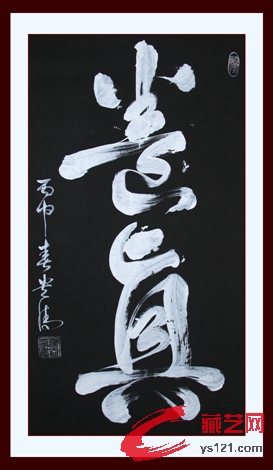 養真
丙申春
藏艺网
ys121.com